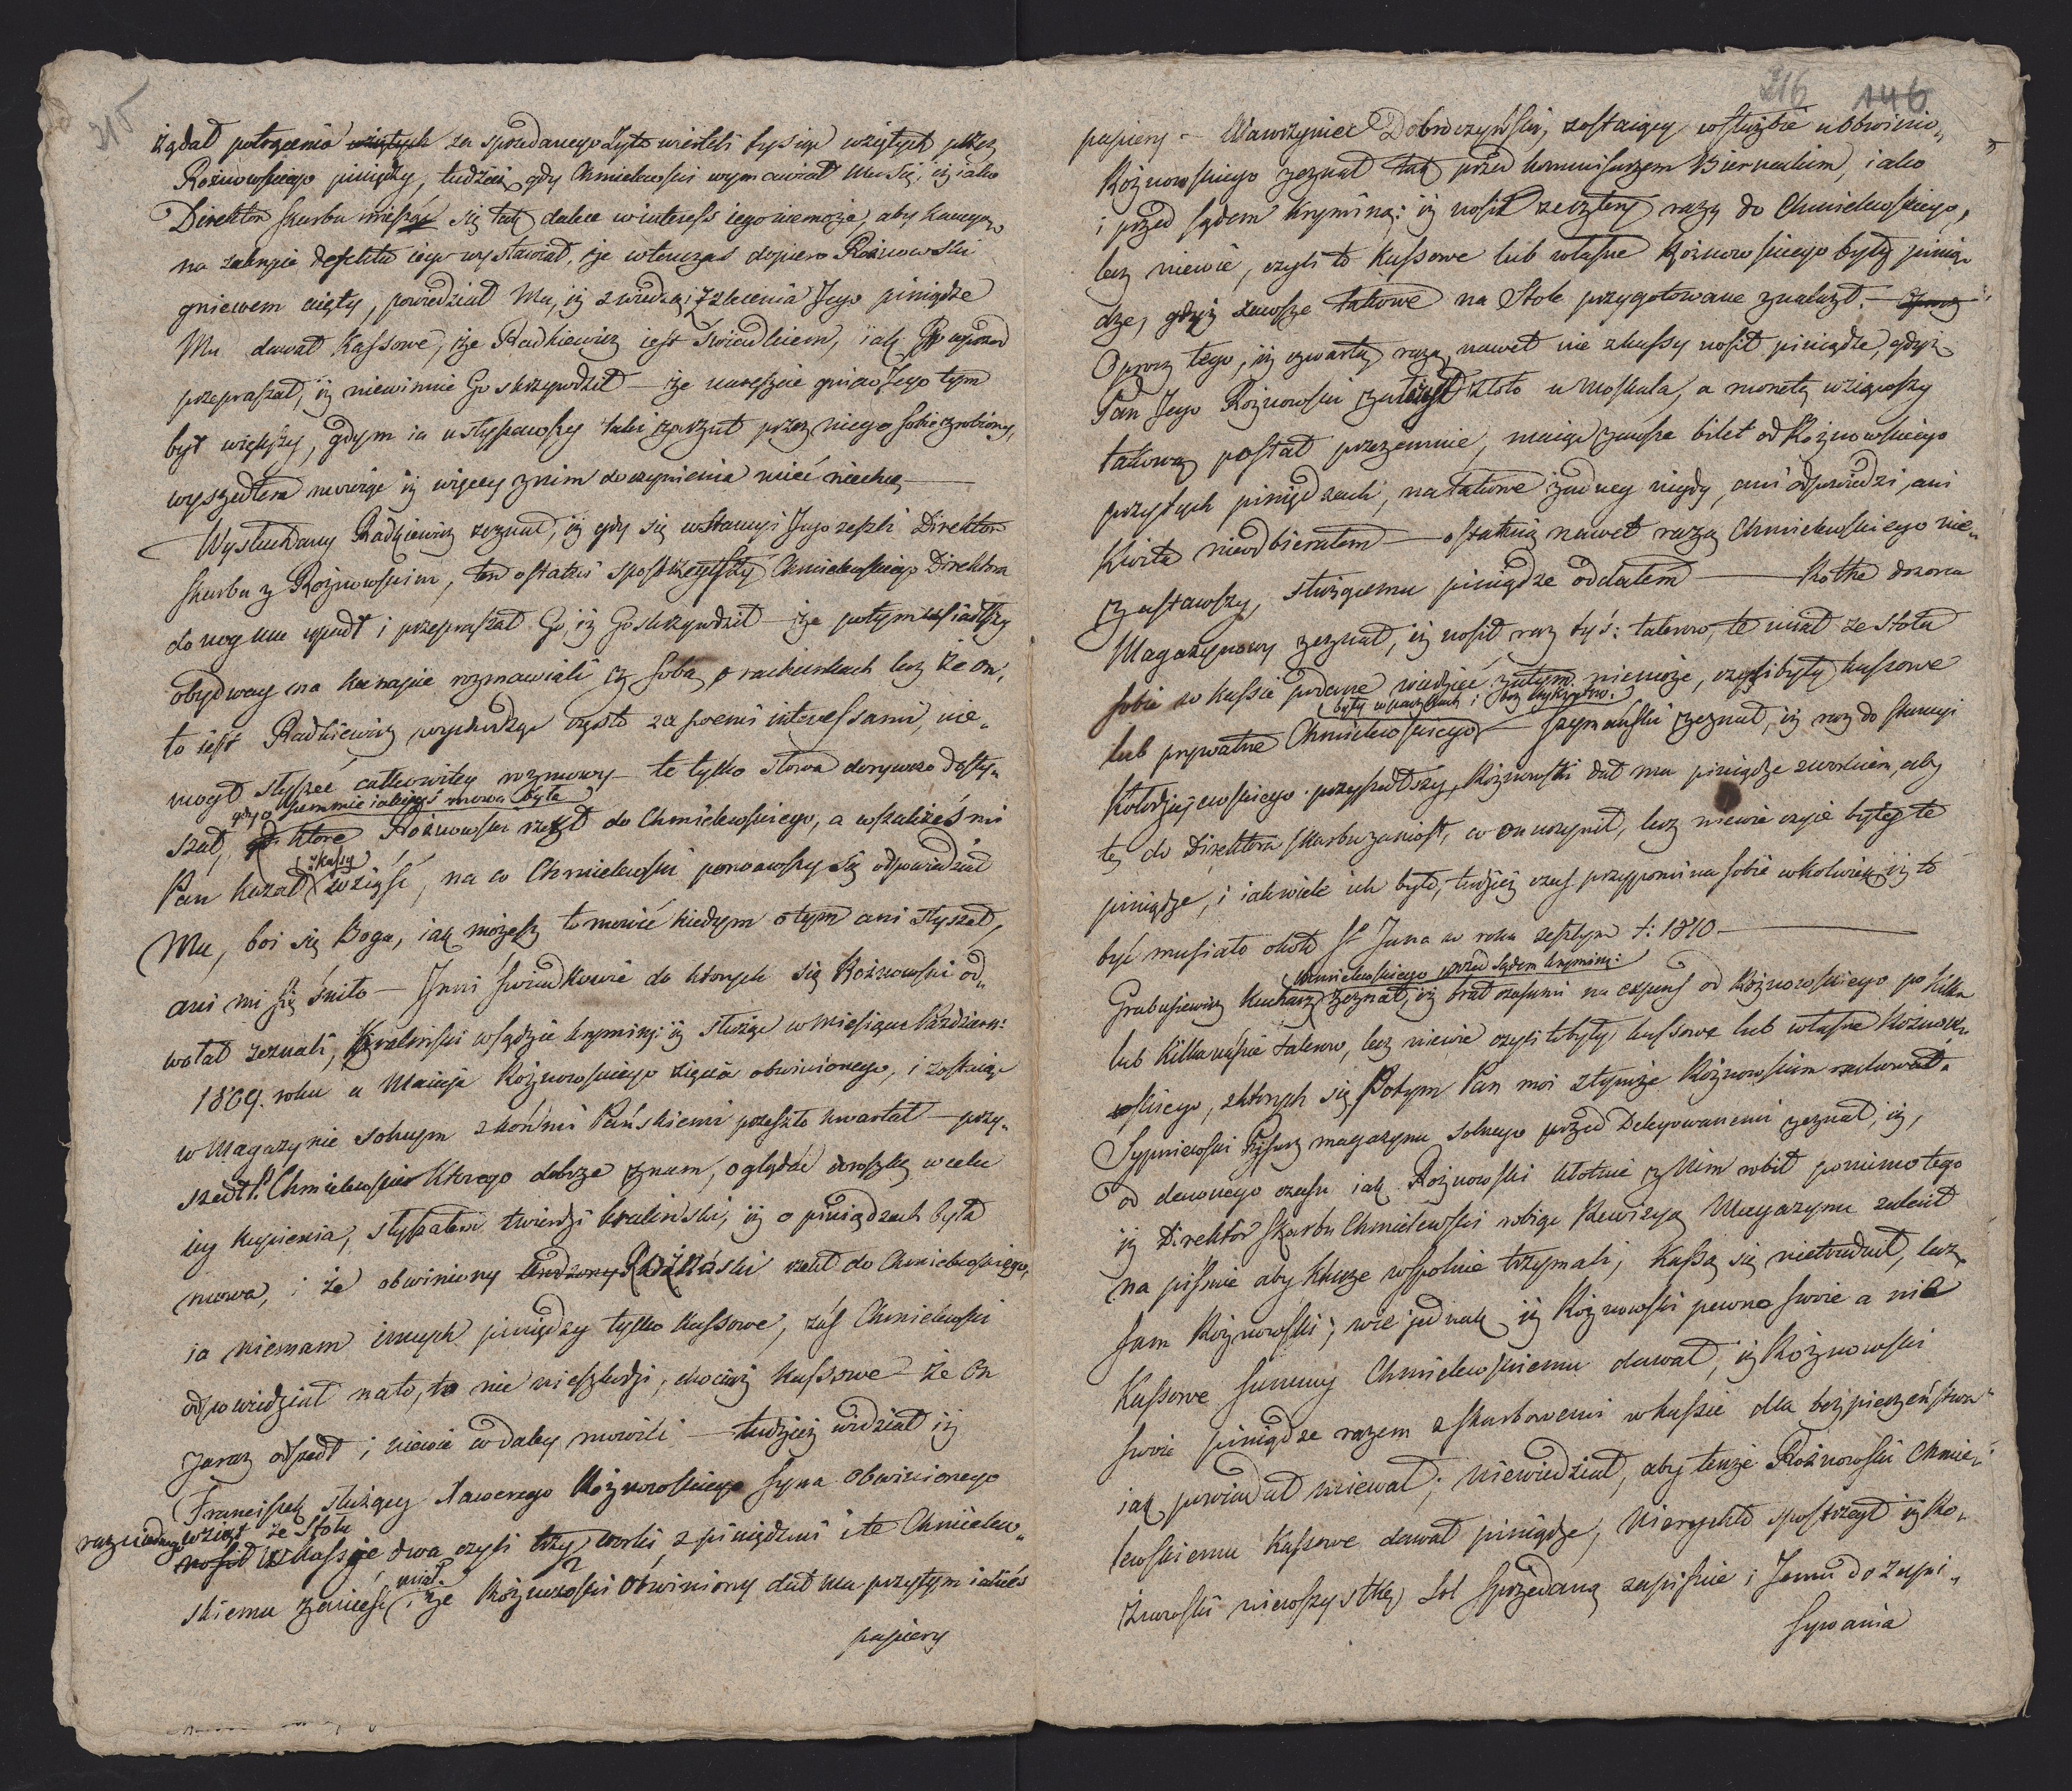 215
żądał potrącenia wziętych za sprzedanego Żyta wierteli tysiąc wziętych przez
Rożnowskiego pinięday, tudzież gdy Chmielewski wymawiał Mu się, iż iako
Direktor Skarbu mięszać się tak dalece winteress iego niemoże, aby kaucyą
na zakrycie defektu iego wystawiał, że wtenczas dopiero Rożnowski
gniewem zięty, powiedział Mu, iż z wiedzą i zlecenia Jego piniądze
Mu dawał Kassowe, że Radkiewicz iest Swiadkiem, iak Go wprzod
przepraszał, iż niewinnie Go skrzywdził — że nareszcie gniew Jego tym
był większy, gdym ia usłyszawszy taki zarzut przez niego sobie zrobiony,
wyszedłem mowiąc iż więcey znim doczynienia mieć niechcę —
Wysłuchany Radkiewicz zeznał, iż gdy się wstancyi Jego zeszli Direktor
Skarbu z Rożnowskim, ten ostatni spostrzegłszy Chmielewskiego Direktora
do nog mu upadł i przepraszał Go, iż Go skrzywdził — że potym usiadłszy
obydway na kanapie rozmawiali z sobą o rachunkach lecz że on,
to iest Radkiewicz wychodząc często za swemi interessami, nie„
mogł słyszeć całkowitey rozmowy — te tylko słowa dorywczo dosły„
gdy o summie iakieyś mowa była
szał, które Rożnowski rzekł do Chmielewskiego, a wszakżeś mi
z kassy
Pan kazał wziąść, na co Chmielewski porwawszy się odpowiedział
Mu, boi się Boga, iak możesz to mowić kiedym o tym ani słyszał,
ani mi się śniło — Inni swiadkowie do ktorych się Rożnowski od„
wołał zeznali, Kraliński wsądzie kryminą: iż służąc wMiesiącu Październ:
1809. roku u Macieja Rożnowskiego zięcia obwinionego, i zostaiąc
w Magazynie solnym z końmi Pańskiemi przeszło kwartał — przy„
szedł P. Chmielewski Ktorego dobrze znam, oglądać doroszkę wcelu
iey kupienia, słyszałem twierdzi Kraliński, iż o piniądzach była
mowa, i że obwiniony Rożnowski rzekł do Chmielewskiego,
ia niemam innych piniędzy tylko Kassowe, zaś Chmielewski
odpowiedział nato, to nie nieszkodzi, chociaż kassowe — że On
zaraz odszedł i niewie co daley mowili — tudzież widział iż
Franciszek służący Xawerego Rożnowskiego syna Obwinionego
raz ieden wziął ze Stołu
nosił w Kassie, dwa czyli trzy worki z piniędzmi i te Chmielew„
miał
skiemu zanieść, i że Rożnowski Obwiniony dał Mu przytym iakieś
papiery
216 146
papiery — Wawrzyniec Dobroczyński, zostaiący wsłużbie u Obwinio„
Rożnowskiego zeznał tak przed kommissarzem Biernackim, iako
i przed sądem Kryminą: iż nosił ze cztery razy do Chmielewskiego,
lecz niewie, czyli to Kassowe lub własne Rożnowskiego były pinią„
dze, gdyż zawsze takowe na Stole przygotowane znalazł. —
Oprocz tego, iż czwartą razą nawet nie zkassy nosił piniądze, gdyż
Pan Jego Rożnowski złoto u Moskala, a monetę wziąwszy
takową posłał przezemnie, maiąc zawsze bilet od Rożnowskiego
przytych piniędzach, na takowe żadney nigdy, ani odpowiedzi, ani
Kwitu nieodbierałem — ostatnią nawet razą Chmielewskiego nie„
zastawszy, służącemu piniądze oddałem — Rothe dozorca
Magazynowy zeznał, iż nosił raz tyś: talarow, te miał ze stołu
sobie w kassie podane wiedzieć zatym niemoże, czyli były kassowe
były w paczkach i bez
lub prywatne Chmielewskiego — Szymański zeznał, iż raz do stancyi
Kołodziejewskiego przyszedłszy, Rożnowski dał mu piniądze zworkiem, aby
te do Direktora skarbu zaniosł, co on uczynił, lecz niewie czyie były te
piniądze, i iakwiele ich było, tudzież czas przypomina sobie wkolwiek, iż to
być musiało około St Jana w roku zeszłym t: 1810 —
Chmielewskiego przed sądem kryminą:
Grabasiewicz Kucharz zeznał, iż brał czasami na expens od Rożnowskiego po kilka
lub kilkanaście talarow, lecz niewie czyli to były kassowe lub własne Rożnow„
skiego, z ktorych się Potym Pan moi z tymże Rożnowskim rachował.
Sypniewski Pisarz magazynu solnego przed Delegowanemi zeznał, iż,
od dawnego czasu iak Rożnowski kłotnie z Nim robił pomimo tego
iż Direktor Skarbu Chmielewski robiąc Rewizyą Magazynu zalecił
na piśmie aby Klucze wspolnie trzymali, Kassą się nietrudnił, lecz
sam Rożnowski, wie jednak iż Rożnowski pewno swoie a nie
Kassowe summy Chmielewskiemu dawał, iż Rożnowski
swoie piniądze razem z skarbowemi w kassie dla bezpieczeństwa
iak powiadał miewał; niewiedział, aby tenże Rożnowski Chmie„
lewskiemu Kassowe dawał piniądze, Nierychło spostrzegł iż Ro„
żnowski niewszystkę Sol sprzedaną zapisuie i Jemu do zapi„
sywania